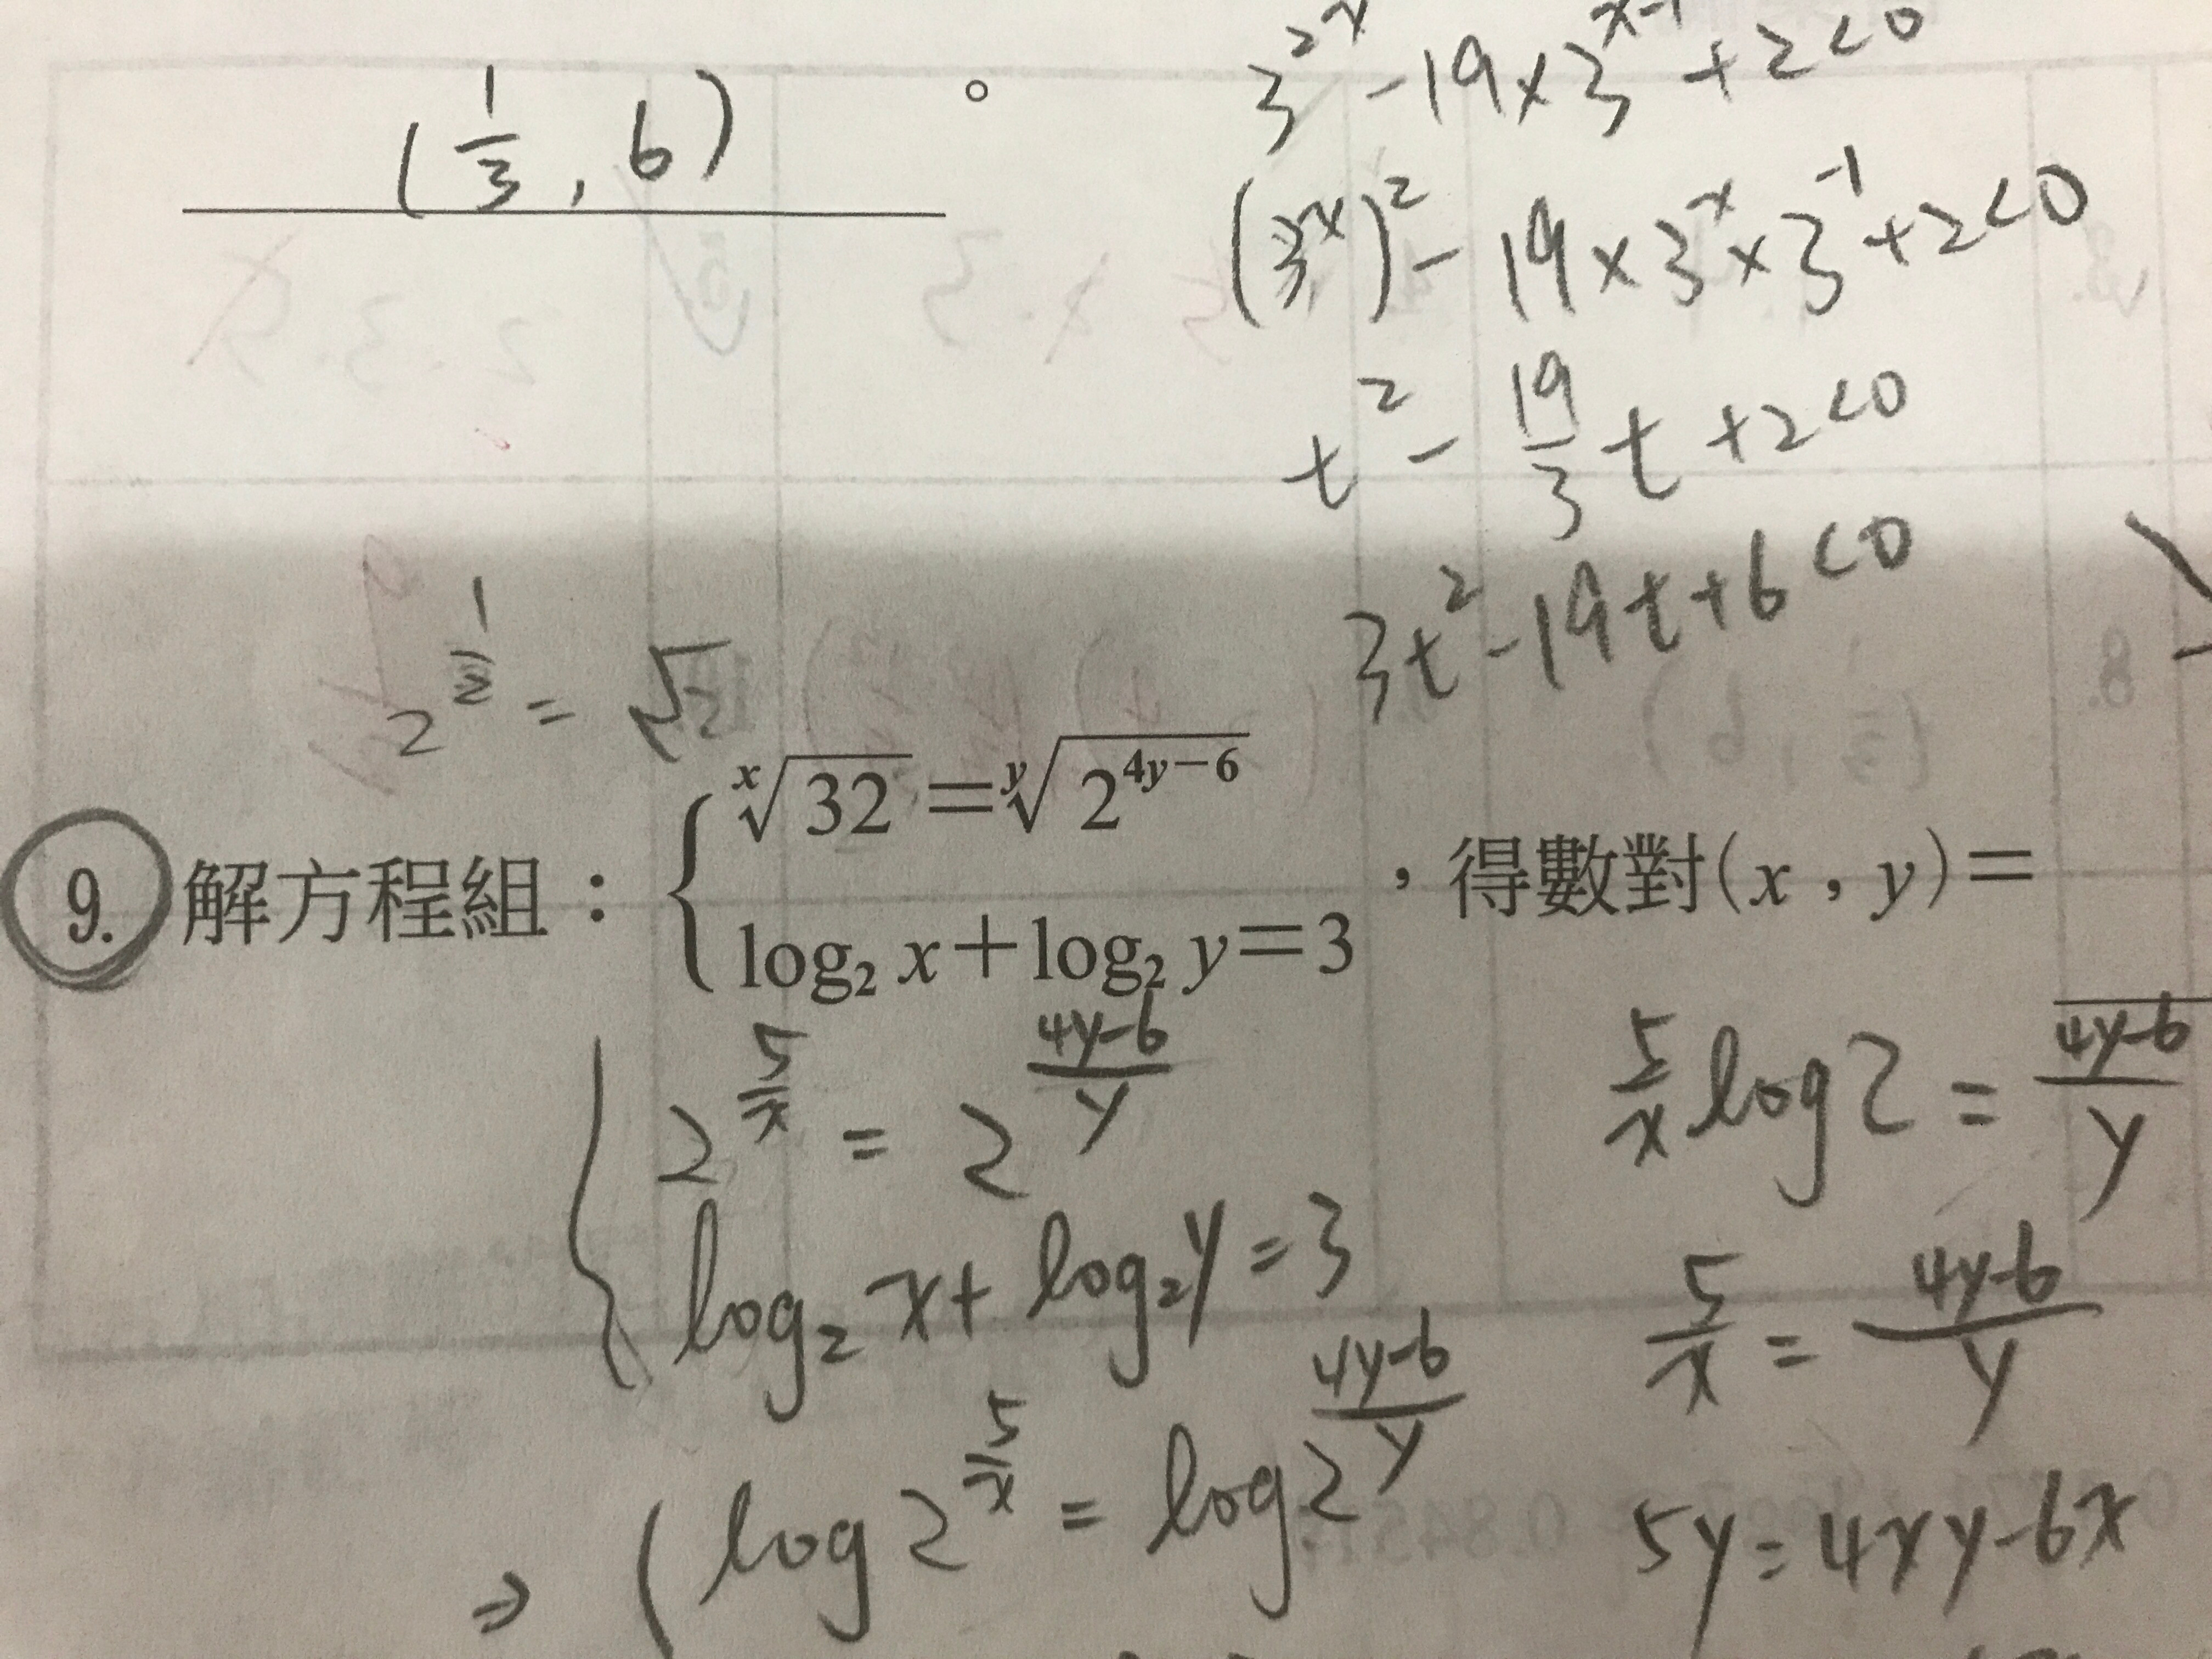 (1/3, 6)。
3^{2x} - 19 × 3^{x-1} + 2 < 0
(3^x)^2 - 19 × 3^x × 3^{-1} + 2 < 0
t^2 - 19/3 t + 2 < 0
3t^2 - 19t + 6 < 0
2^{1/2} = √2
9. 解方程組：{ ^x√32 = ^y√2^{4y-6}
log₂ x + log₂ y = 3 ，得數對(x , y)=
2^{5/x} = 2^{(4y-6)/y}
log₂ x + log₂ y = 3
⇒ log 2^{5/x} = log 2^{(4y-6)/y}
5/x log 2 = (4y-6)/y
5/x = (4y-6)/y
5y = 4xy - 6x